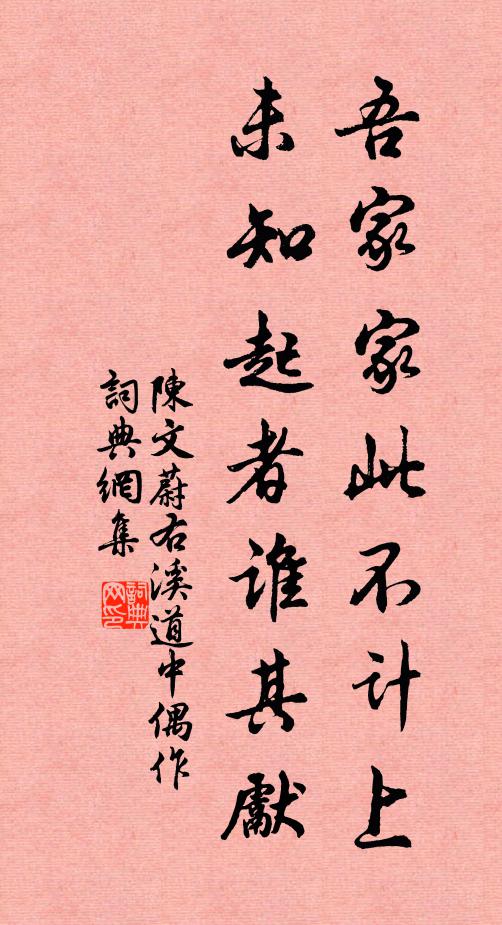 吾家家此不计上
未知起者谁其獻
陳文蔚右溪道中偶作
詞典網集
詞典
网印